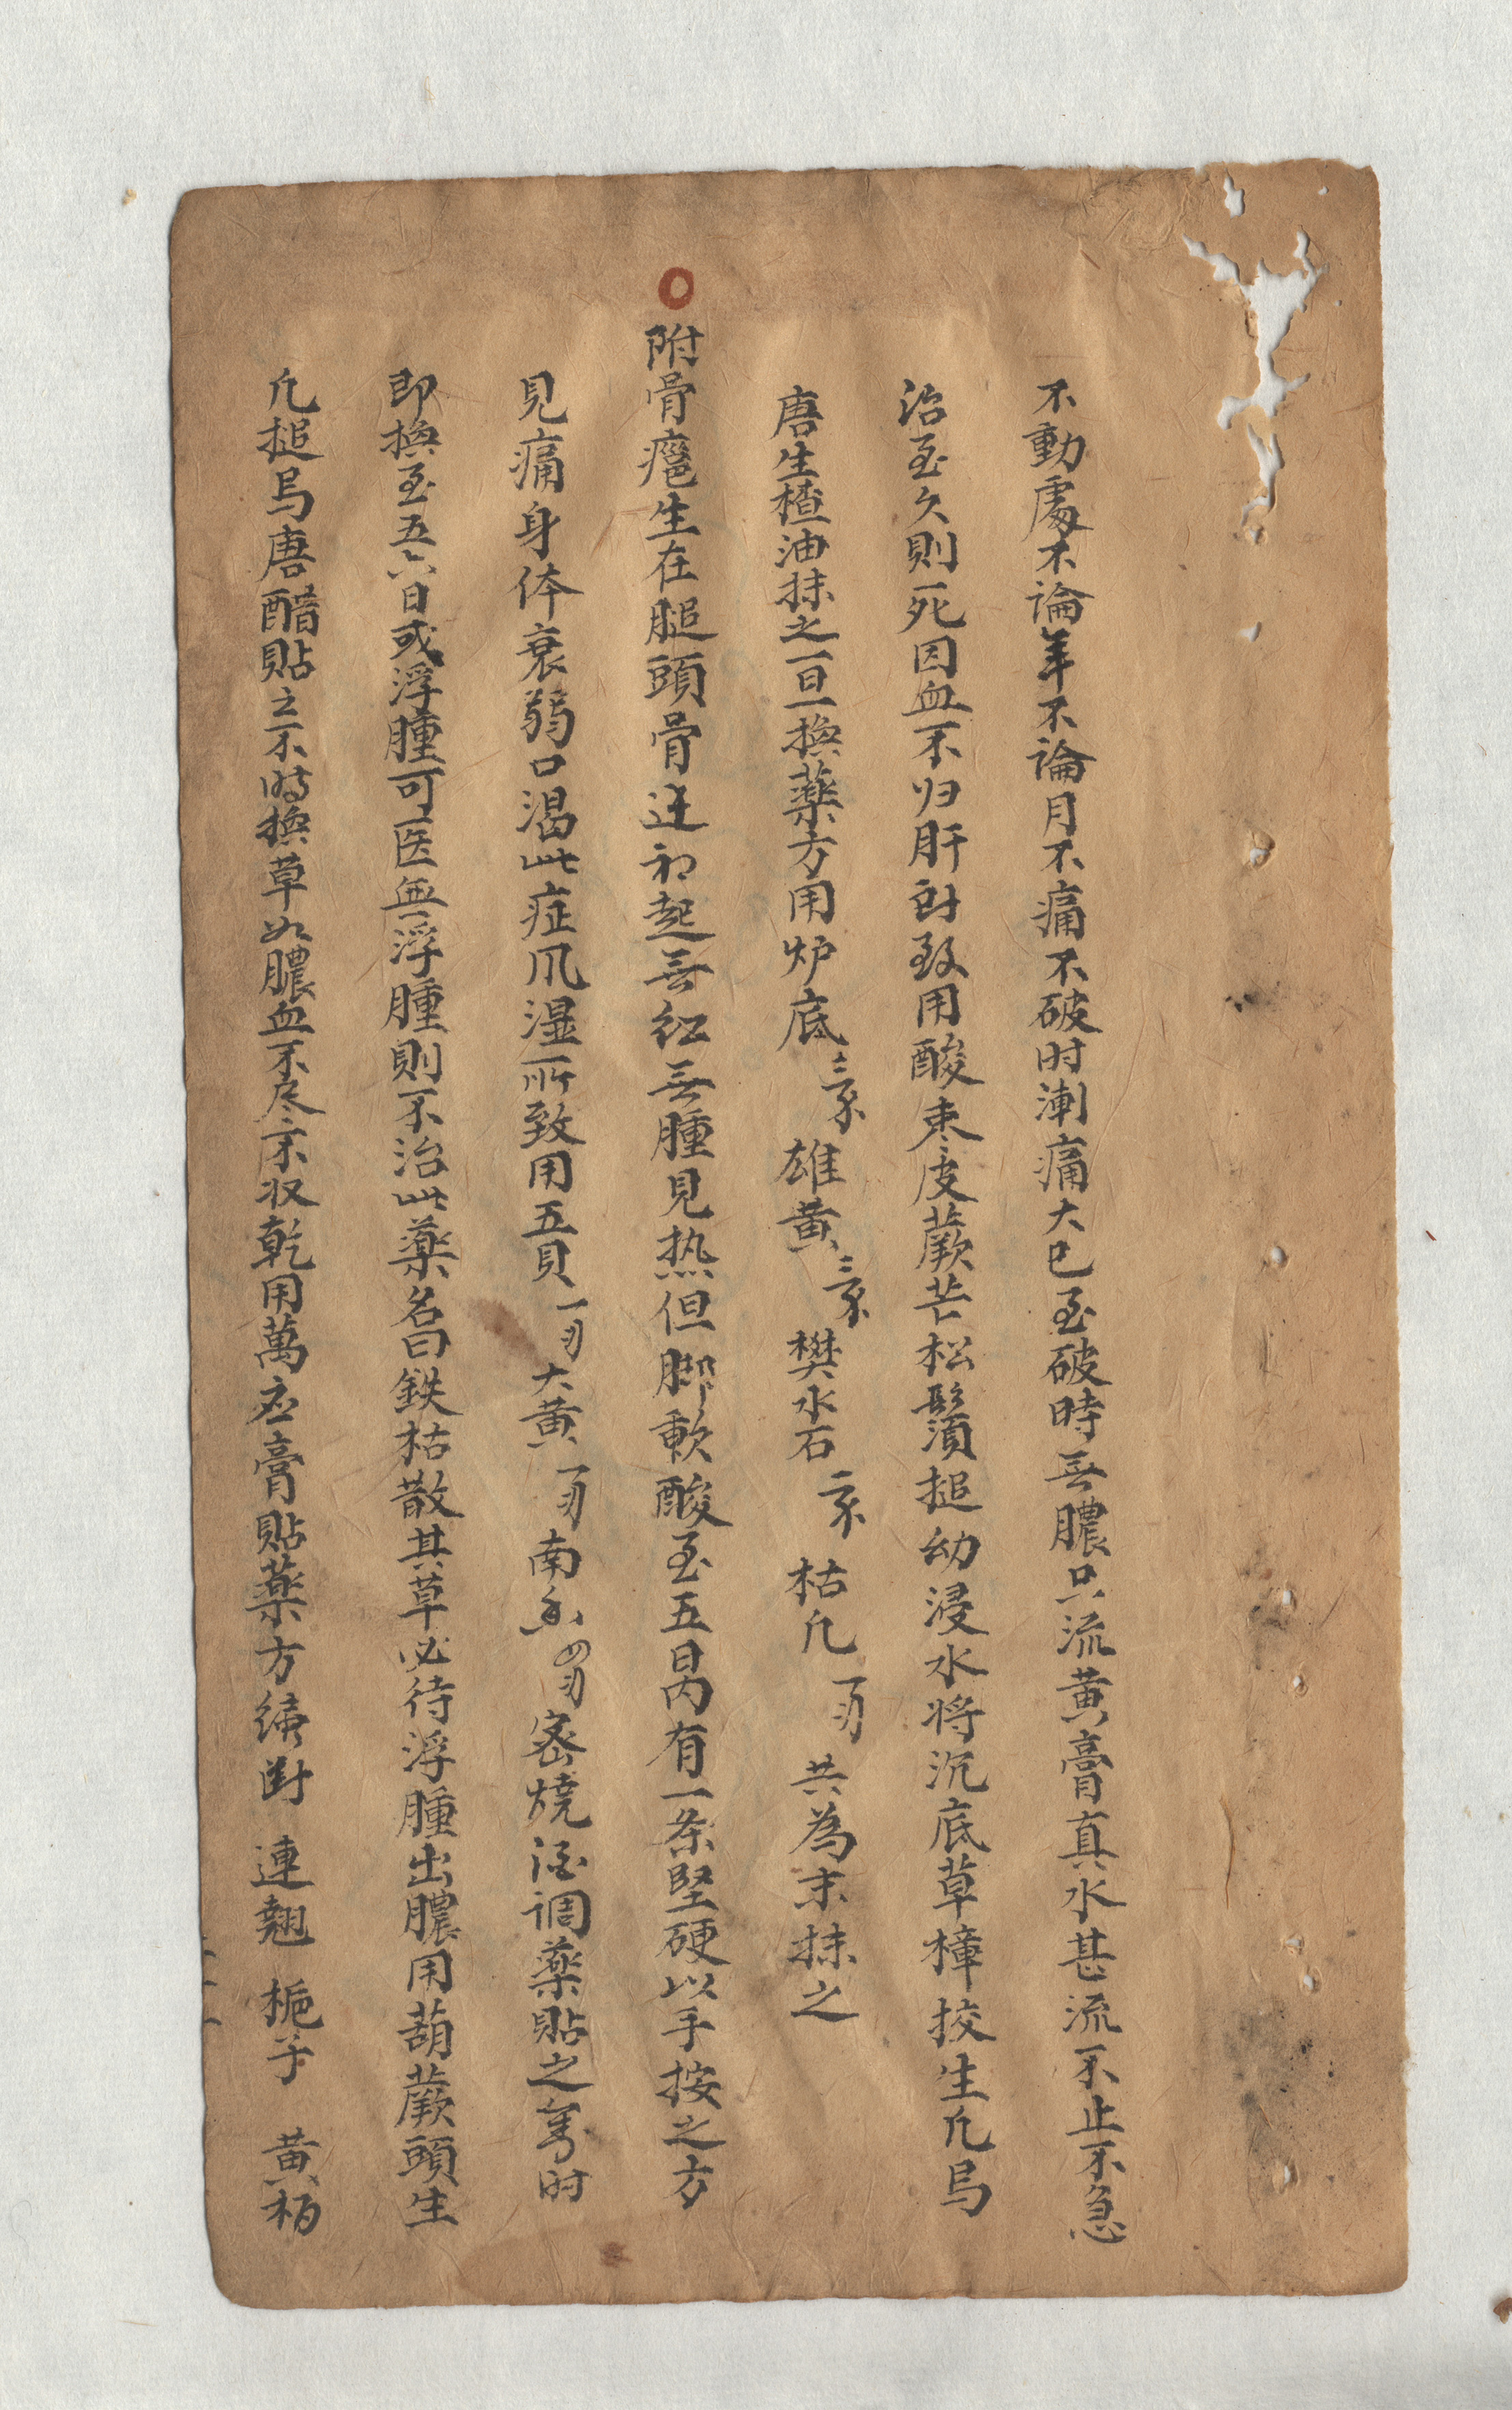 不動處不論年不論月不痛不破时漸痛大已至破時無膿只流黄膏真水甚流不止不急
治至久則死因血不归肝所致用酸枣皮蕨芒松鬚搥幼浸水将沉底草樟挍生凢烏
唐生楂油抹之一日一換藥方用炉底三錢雄黄三錢樊水石二錢枯凢一両共為末抹之
附骨癰生在腿頭骨边初起無红無腫見热但脚軟酸至五日内有一条堅硬以手按之方
見痛身体衰弱口渴此症凨湿所致用五貝一両大黄一両南香四両密燒酒调藥貼之多时
即換至五六日或浮腫可医無浮腫則不治此藥名曰鉄枯散其草必待浮腫出膿用葫蕨頭生
凢搥烏唐醋貼之不時換草如膿血不尽不収乾用萬应膏貼藥方续断 連翹 栀子 黄栢